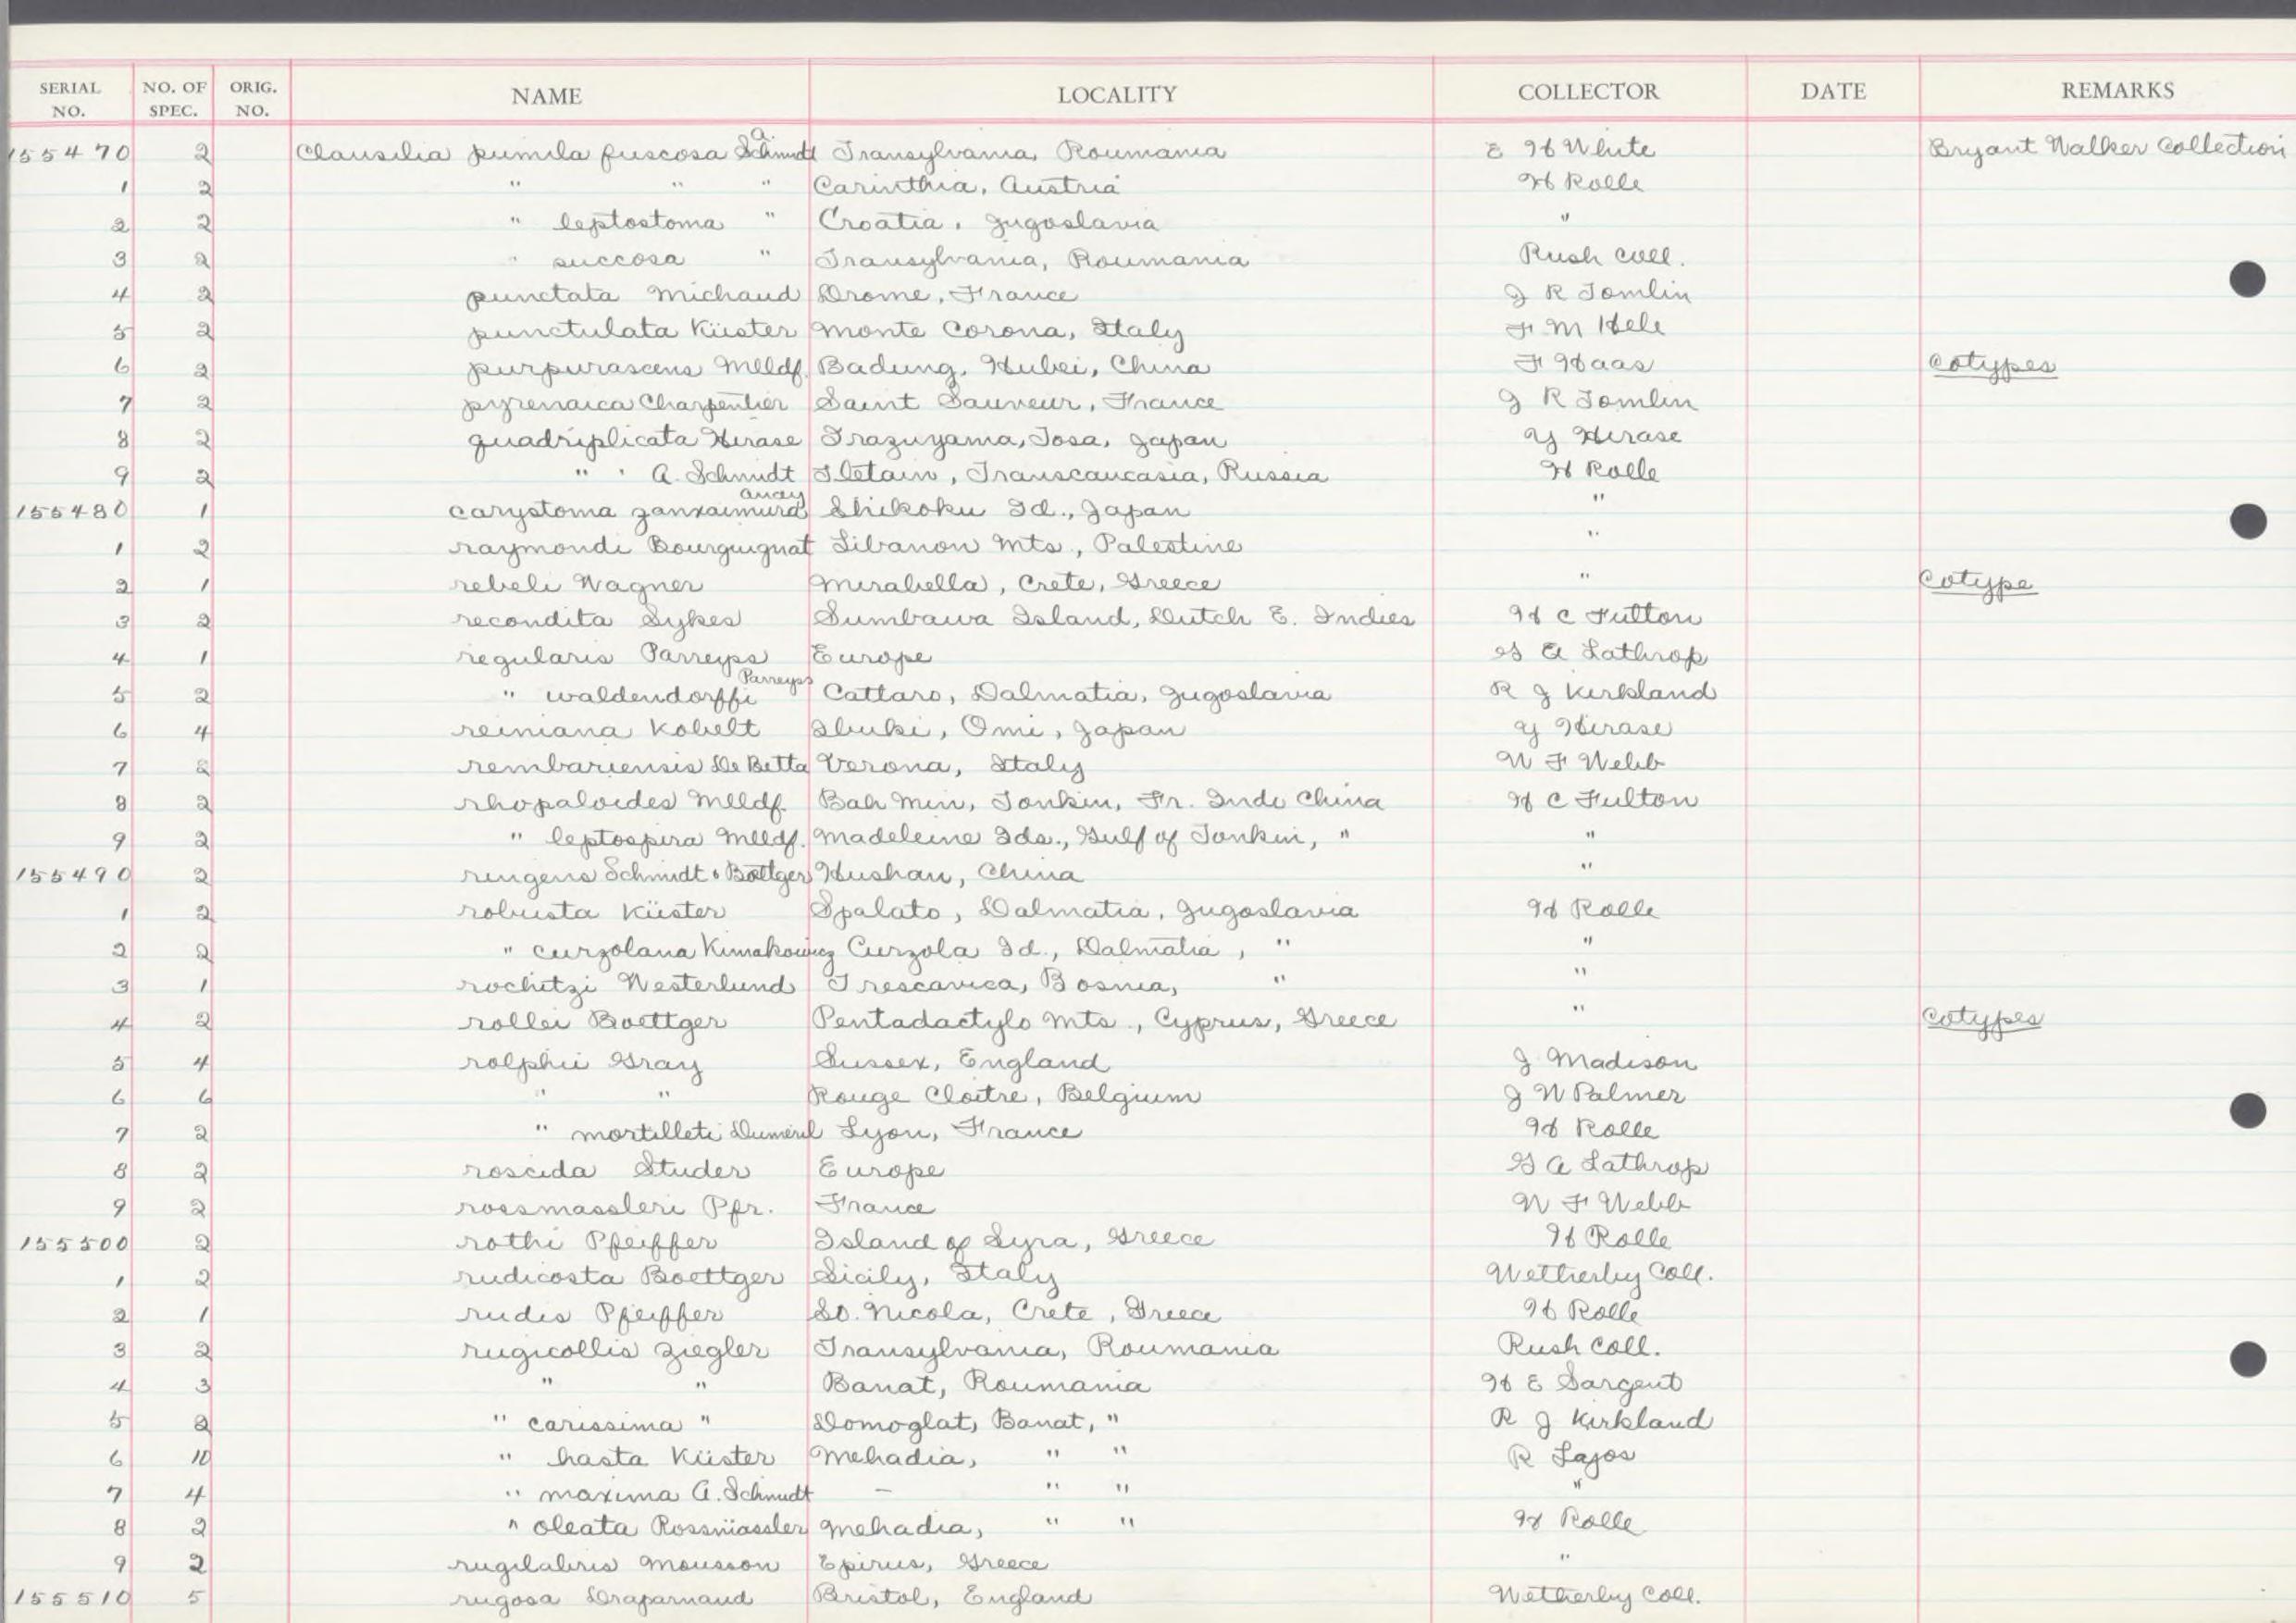 SERIAL NO. NO. OF SPEC. ORIG. NO. NAME LOCALITY COLLECTOR DATE REMARKS
155470 2 Clausilia pumila fuscosa A. Schmidt Transylvania, Roumania E H White Bryant Walker Collection
1 2 " " " Carinthia, Austria H Rolle
2 2 " leptostoma " Croatia, Jugoslavia "
3 2 " succosa " Transylvania, Roumania Rush Coll.
4 2 punctata Michaud Drome, France J R Tomlin
5 2 punctulata Küster Monte Corona, Italy F M Hele
6 2 purpurascens Mlldf. Badung, Hubei, China F Haas Cotypes
7 2 pyrenaica Charpentier Saint Sauveur, France J R Tomlin
8 2 quadriplicata Hirase Irazuyama, Tosa, Japan Y Hirase
9 2 " " A. Schmidt Iletain, Transcaucasia, Russia H Rolle
155480 1 carystoma Shikoku Id., Japan "
1 2 raymondi Bourguignat Libanon Mts., Palestine "
2 1 rebeli Wagner Mirabella, Crete, Greece " Cotype
3 2 recondita Sykes Sumbawa Island, Dutch E. Indies H C Fulton
4 1 regularis Parreyss Europe G A Lathrop
5 2 " waldendorffi Parreyss Cattaro, Dalmatia, Jugoslavia R J Kirkland
6 4 reiniana Kobelt Ibuki, Omi, Japan Y Hirase
7 2 rembariensis De Betta Verona, Italy W F Webb
8 2 rhopaloides Mlldf. Bah Min, Tonkin, Fr. Indo China H C Fulton
9 2 " leptospira Mlldf. Madeleine Ids., Gulf of Tonkin, " "
155490 2 ringens Schmidt & Bottger Hushan, China "
1 2 robusta Küster Spalato, Dalmatia, Jugoslavia H Rolle
2 2 " curzolana Kimakowicz Curzola Id., Dalmatia, " "
3 1 rochitzi Westerlund Trescavica, Bosnia, " "
4 2 rollei Boettger Pentadactylo Mts., Cyprus, Greece " Cotypes
5 4 rolphii Gray Sussex, England J Madison
6 6 " " Rouge Cloitre, Belgium J W Palmer
7 2 " mortilleti Dumeril Lyon, France H Rolle
8 2 roscida Studer Europe G A Lathrop
9 2 rossmassleri Pfr. France W F Webb
155500 2 rothi Pfeiffer Island of Syra, Greece H Rolle
1 2 rudicosta Boettger Sicily, Italy Wetherby Coll.
2 1 rudis Pfeiffer St. Nicola, Crete, Greece H Rolle
3 2 rugicollis Ziegler Transylvania, Roumania Rush Coll.
4 3 " " Banat, Roumania H E Sargent
5 2 " carissima " Domoglat, Banat, " R J Kirkland
6 10 " hasta Küster Mehadia, " " R Lajos
7 4 " maxima A. Schmidt — " " "
8 2 " oleata Rossmässler Mehadia, " " H Rolle
9 2 rugilabris Mousson Epirus, Greece "
155510 5 rugosa Draparnaud Bristol, England Wetherby Coll.